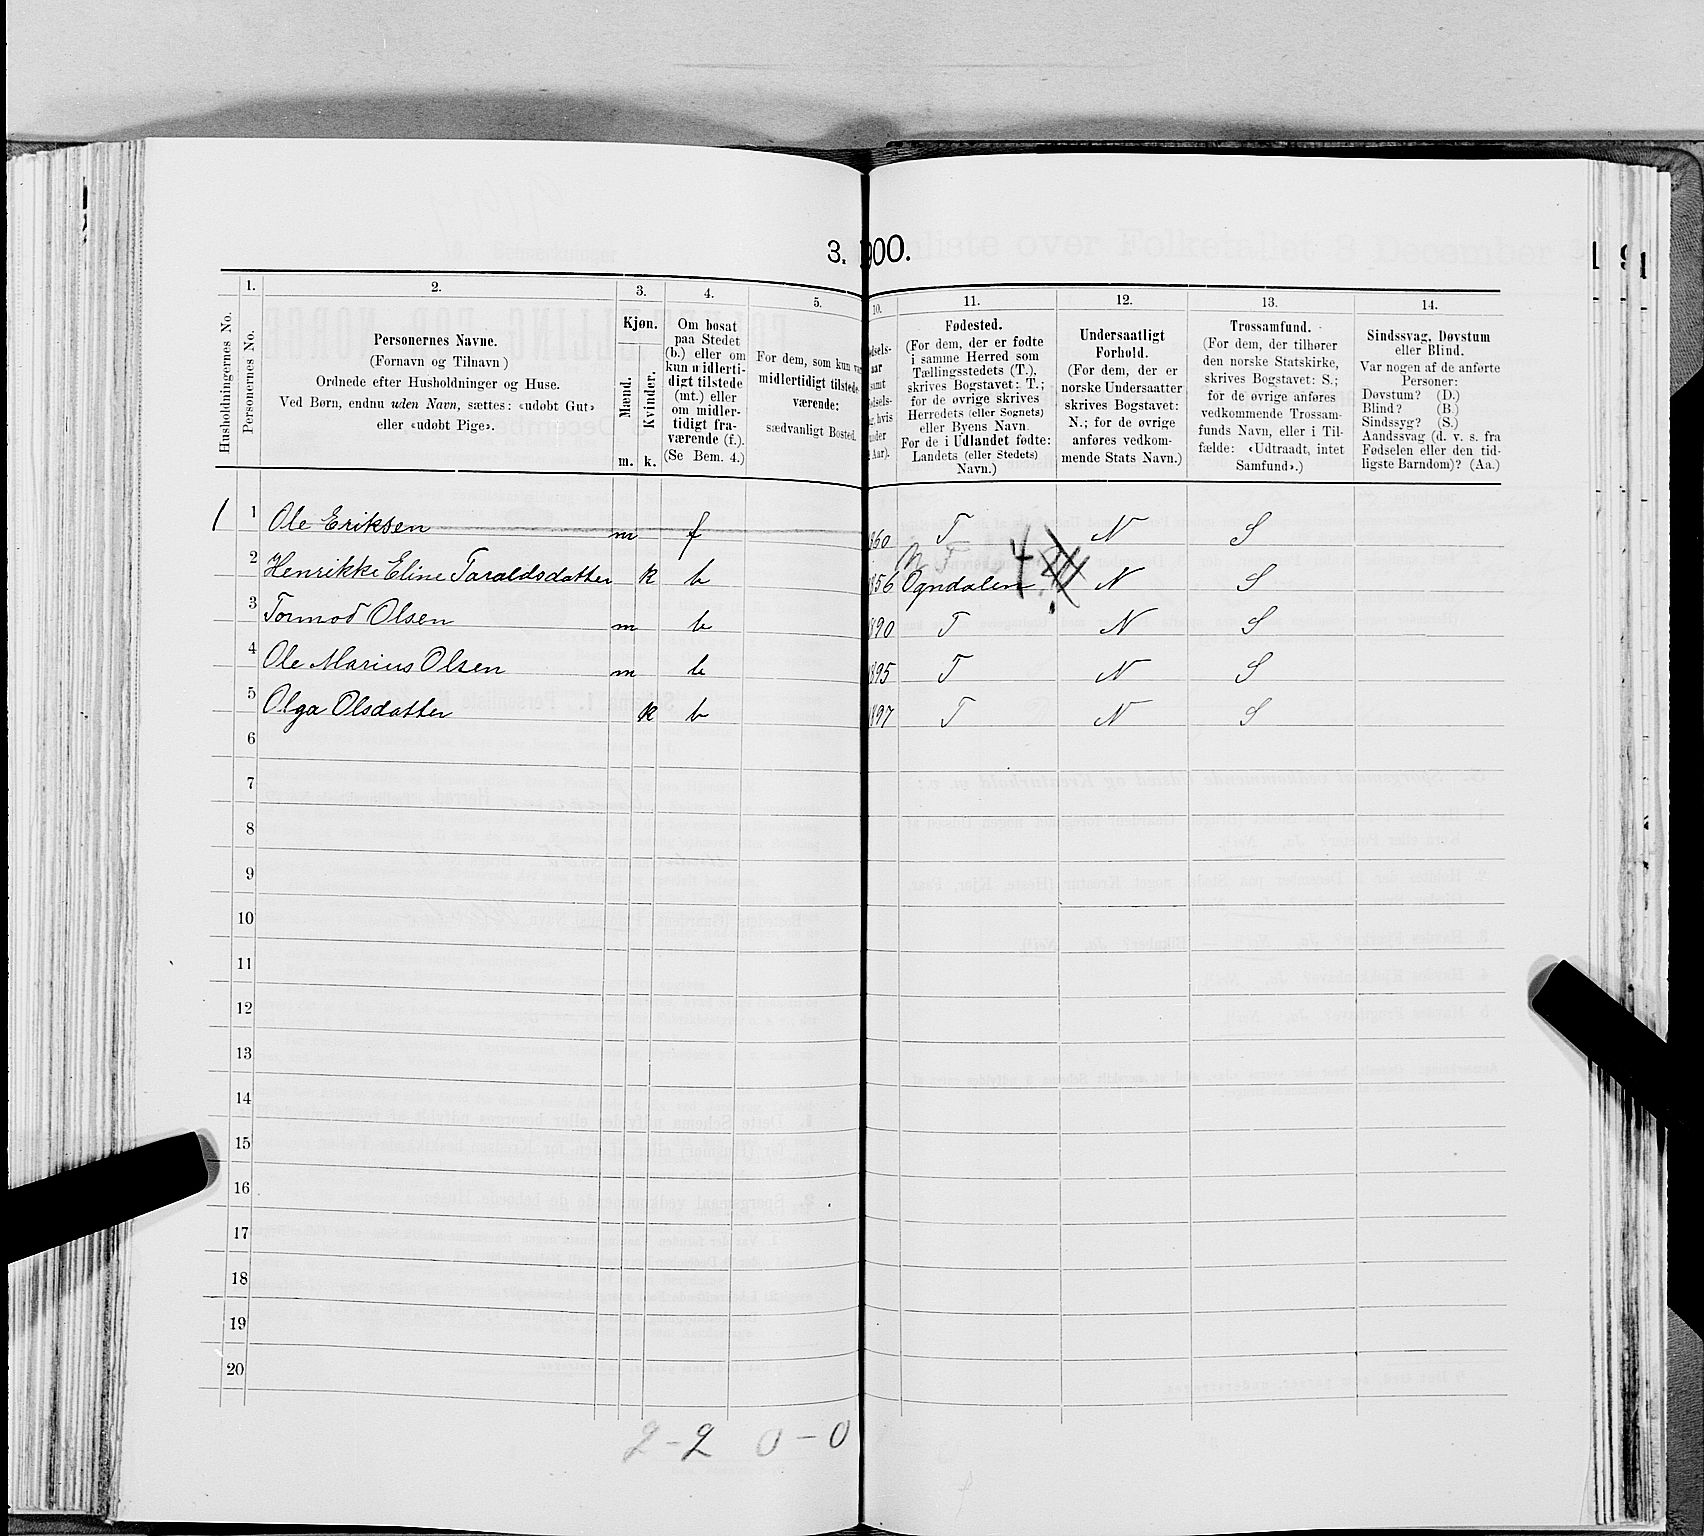 3. 00.
1. 2. 3. 4. 5. 10. 11. 12. 13. 14.
Husholdningernes No.
Personernes No.
Personernes Navne.
(Fornavn og Tilnavn)
Ordnede efter Husholdninger og Huse.
Ved Børn, endnu uden Navn, sættes: «udøbt Gut»
eller «udøbt Pige».
Kjøn.
Mænd.
Kvinder.
m. k.
Om bosat
paa Stedet
(b.) eller om
kun midlerti-
digt tilstede
(mt.) eller
om midler-
tidigt fra-
værende (f.).
(Se Bem. 4.)
For dem, som kun va
midlertidigt tilstede-
værende:
sædvanligt Bosted.
dsels-
aar
samt
dsels-
hvis
under
Aar).
Fødested.
(For dem, der er fødte
i samme Herred som
Tællingsstedets (T.),
skrives Bogstavet: T.;
for de øvrige skrives
Herredets (eller Sognets)
eller Byens Navn.
For de i Udlandet fødte:
Landets (eller Stedets)
Navn.)
Undersaatligt
Forhold.
(For dem, der er
norske Undersaatter,
skrives Bogstavet:
N.; for de øvrige
anføres vedkom-
mende Stats Navn.)
Trossamfund.
(For dem, der tilhører
den norske Statskirke,
skrives Bogstavet: S.;
for de øvrige anføres
vedkommende Trossam-
funds Navn, eller i Til-
fælde: «Udtraadt, intet
Samfund».)
Sindssvag, Døvstum
eller Blind.
Var nogen af de anførte
Personer:
Døvstum? (D.)
Blind? (B.)
Sindssyg? (S.)
Aandssvag (d. v. s. fra
Fødselen eller den tid-
ligste Barndom)? (Aa.)
1 1 Ole Eriksen m f 860 T N S
2 Henrikke Eline Taraldsdatter k b 856 Ogndalen N S
3 Tormod Olsen m b 890 T N S
4 Ole Marius Olsen m b 895 T N S
5 Olga Olsdatter k b 897 T N S
6
7
8
9
10
11
12
13
14
15
16
17
18
19
20
2 - 2 0 - 0